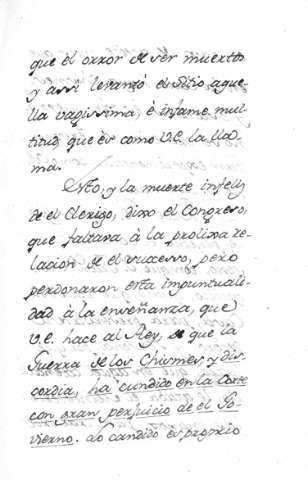 que el orror de ser muertos
y assi levantó el sitio aque-
lla vapissima, è infame mul-
titud, que es como V.E. la lla-
ma.
Esto, y la muerte infeliz
de el Clerigo, dixo el Congreso,
que faltava à la prolixa re-
lacion de el successo, pero
perdonaron esta impuntuali-
dad à la enseñanza, que
V.E. hace al Rey, de que la
Guerra de los Chismes, y dis-
cordia, ha cundido en la Corte
con gran perjuicio de el Go-
vierno. Lo candido es proprio